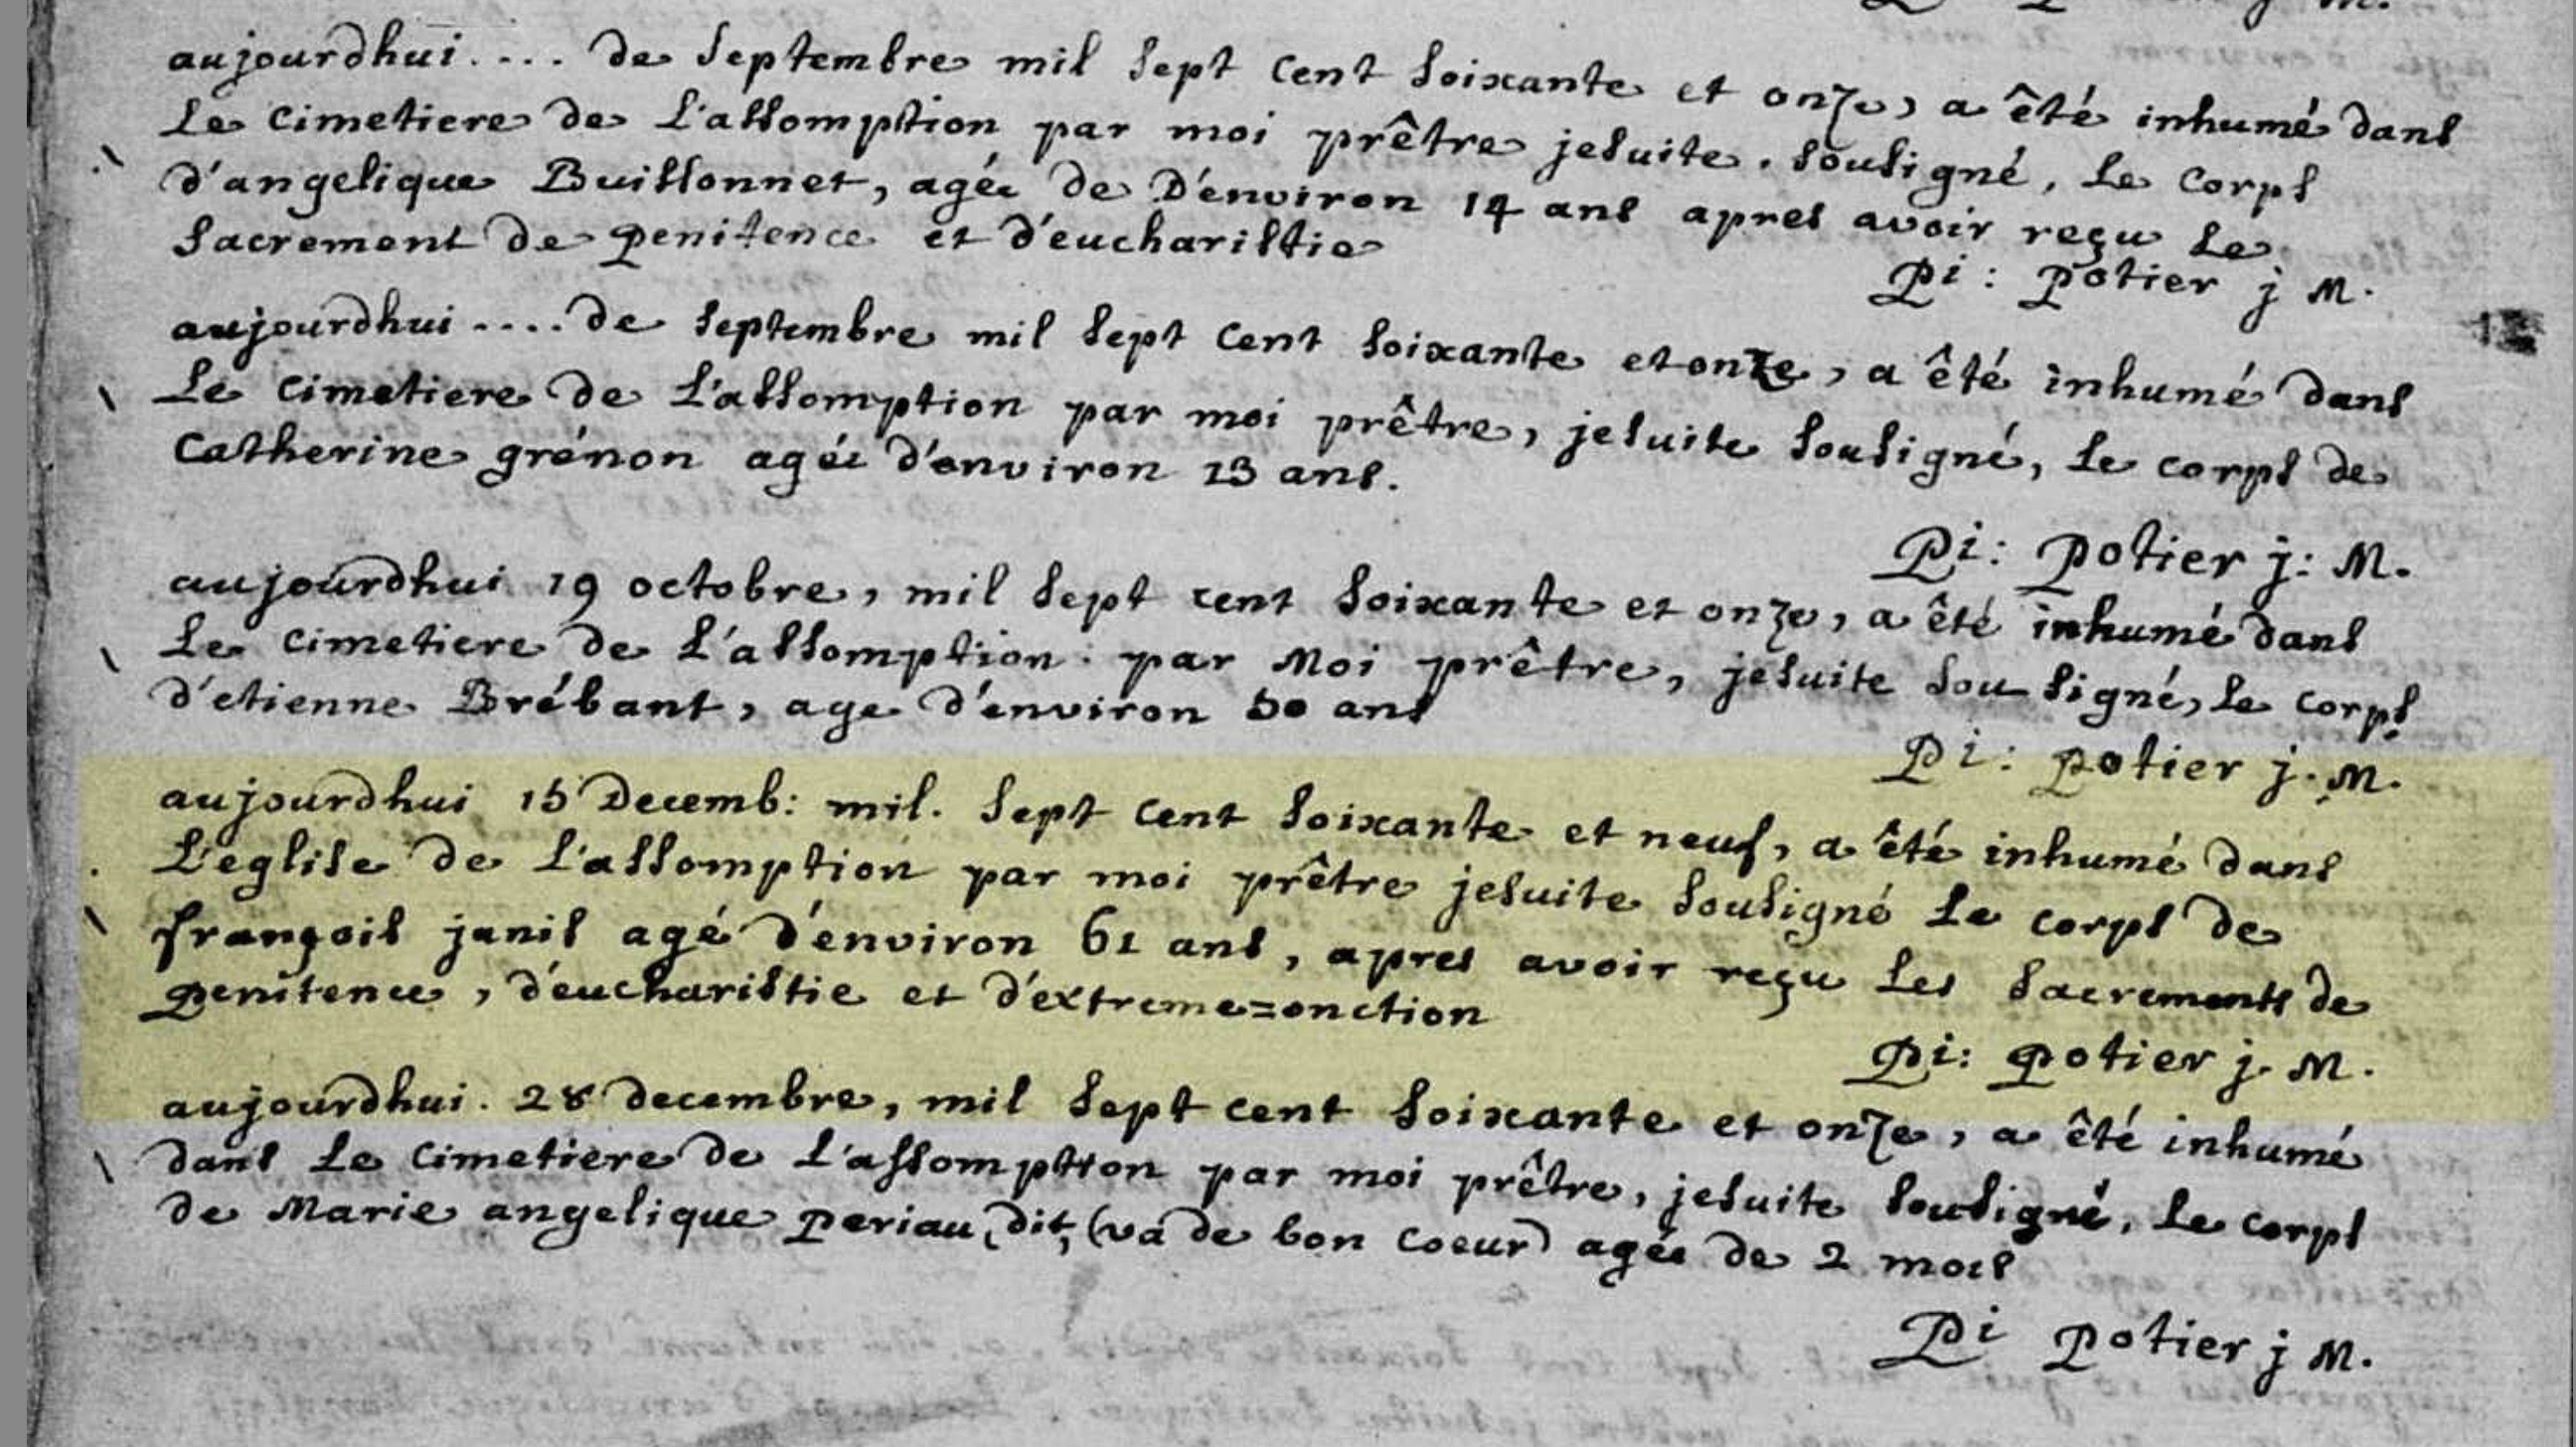 aujourdhui.... de septembre mil sept cent soixante et onze, a été inhumé dans
Le cimetiere de L'assomption par moi prêtre jesuite. sousigné, Le corps
d'angelique Buissonnet, agée de D'environ 14 ans apres avoir reçu Le
sacrement de penitence et d'eucharistie
Pi: potier j M.
aujourdhui.... de septembre mil sept cent soixante et onze, a été inhumé dans
Le cimetiere de L'assomption par moi prêtre, jesuite sousigné, Le corps de
Catherine grénon agée d'environ 13 ans.
Pi: potier j: M.
aujourdhui 19 octobre, mil sept cent soixante et onze, a été inhumé dans
Le cimetiere de L'assomption. par Moi prêtre, jesuite sousigné, Le corps
d'etienne Brébant, age d'environ 50 ans
Pi: potier j. M.
aujourdhui 15 Decemb: mil. sept cent soixante et neuf, a été inhumé dans
L'eglise de L'assomption par moi prêtre jesuite sousigné Le corps de
françois janis agé d'environ 61 ans, apres avoir reçu Les sacrements de
penitence, d'eucharistie et d'extreme=onction
Pi: potier j. M.
aujourdhui. 28 decembre, mil sept cent soixante et onze, a été inhumé
dans Le cimetière de L'assomption par moi prêtre, jesuite sousigné, Le corps
de Marie angelique periau, dit, (va de bon coeur) agée de 2 mois
Pi potier j M.